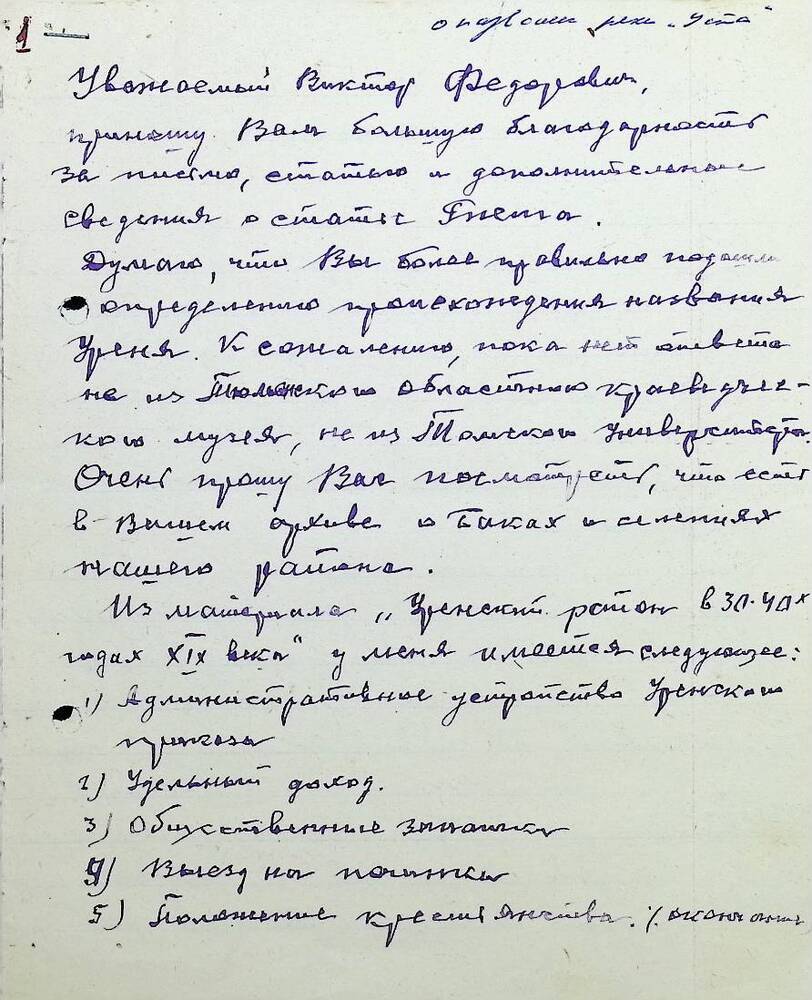 1
о названии реки „Уста"
Уважаемый Виктор Федорович,
приношу Вам большую благодарность
за письмо, статью и дополнительные
сведения о статье Гнета.
Думаю, что Вы более правильно подошли
определению происхождения названия
Уреня. К сожалению, пока нет ответа
не из Тюменского областного краеведчес-
кого музея, не из Томского Университета.
Очень прошу Вас посмотреть, что есть
в Вашем архиве о Баках и селениях
нашего района.
Из материала „Уренский район в 30-40х
годах XIX века" у меня имеется следующее:
1) Административное устройство Уренского
приказа
2) Удельный доход.
3) Общественные запашки
4) Выезд на починки
5) Положение крестьянства. /окончание